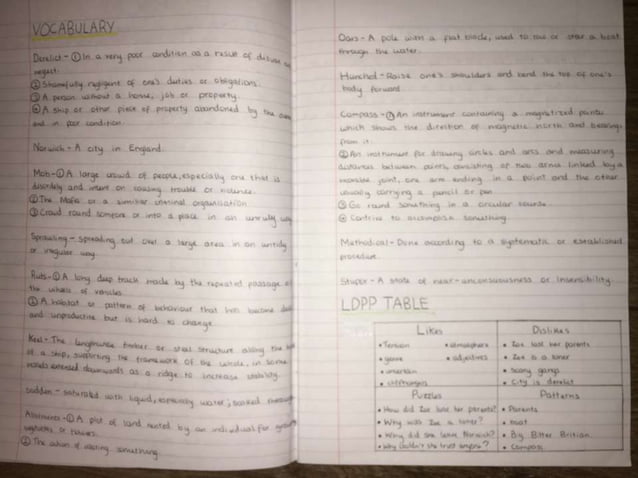 VOCABULARY
Derelict - ① In a very poor condition as a result of disuse and
neglect.
② Shamefully negligent of one's duties or obligations.
③ A person without a home, job or property.
④ A ship or other piece of property abandoned by the
and in poor condition.
Norwich - A city in England.
Mob - ① A large crowd of people, especially one that is
disorderly and intent on causing trouble or violence.
② The Mafia or a similar criminal organisation.
③ Crowd round someone or into a place in an unruly way.
Sprawling - Spreading out over a large area in an untidy
or irregular way.
Ruts - ① A long deep track made by the repeated passage of
the wheels of vehicles.
② A habitat or pattern of behaviour that has become dull
and unproductive but is hard to change.
Keel - The lengthwise timber or steel structure along the base
of a ship, supporting the framework of the whole, in some
extended downwards as a ridge to increase stability.
Sodden - saturated with liquid, especially water; soaked through.
Allotments - ① A plot of land rented by an individual for growing
vegetables or flowers.
② The action of something.
Oars - A pole with a flat blade, used to row or steer a boat
through the water.
Hunched - Raise one's shoulders and bend the top of one's
body forward.
Compass - ① An instrument containing a magnetized pointer
which shows the direction of magnetic north and bearings
from it.
② An instrument for drawing circles and arcs and measuring
distances between points, consisting of two arms linked by a
movable joint, one arm ending in a point and the other
usually carrying a pencil or pen.
③ Go round something in a circular course.
④ Contrive to accomplish something.
Methodical - Done according to a systematic or established
procedure.
Stupor - A state of near-unconsciousness or insensibility.
LDPP TABLE
Likes
• Tension • atmosphere
• genre • adjectives
• uncertain
• cliffhangers
Dislikes
• Zoe lost her parents
• Zoe is a loner
• Scary gangs
• City is derelict
Puzzles
• How did Zoe lose her parents?
• Why was Zoe a loner?
• Why did she leave Norwich?
• Why couldn't she trust anyone?
Patterns
• Parents
• boat
• Big Bitter Britian.
• Compass